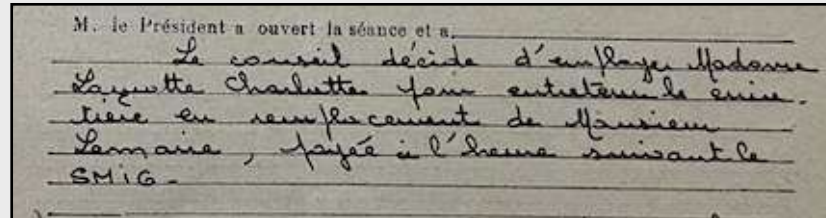 M. le Président a ouvert la séance et a
Le conseil décide d'employer Madame
Charlotte pour entretenir le cime-
tière en remplacement de Monsieur
Lemaire, payée à l'heure suivant le
SMIG-